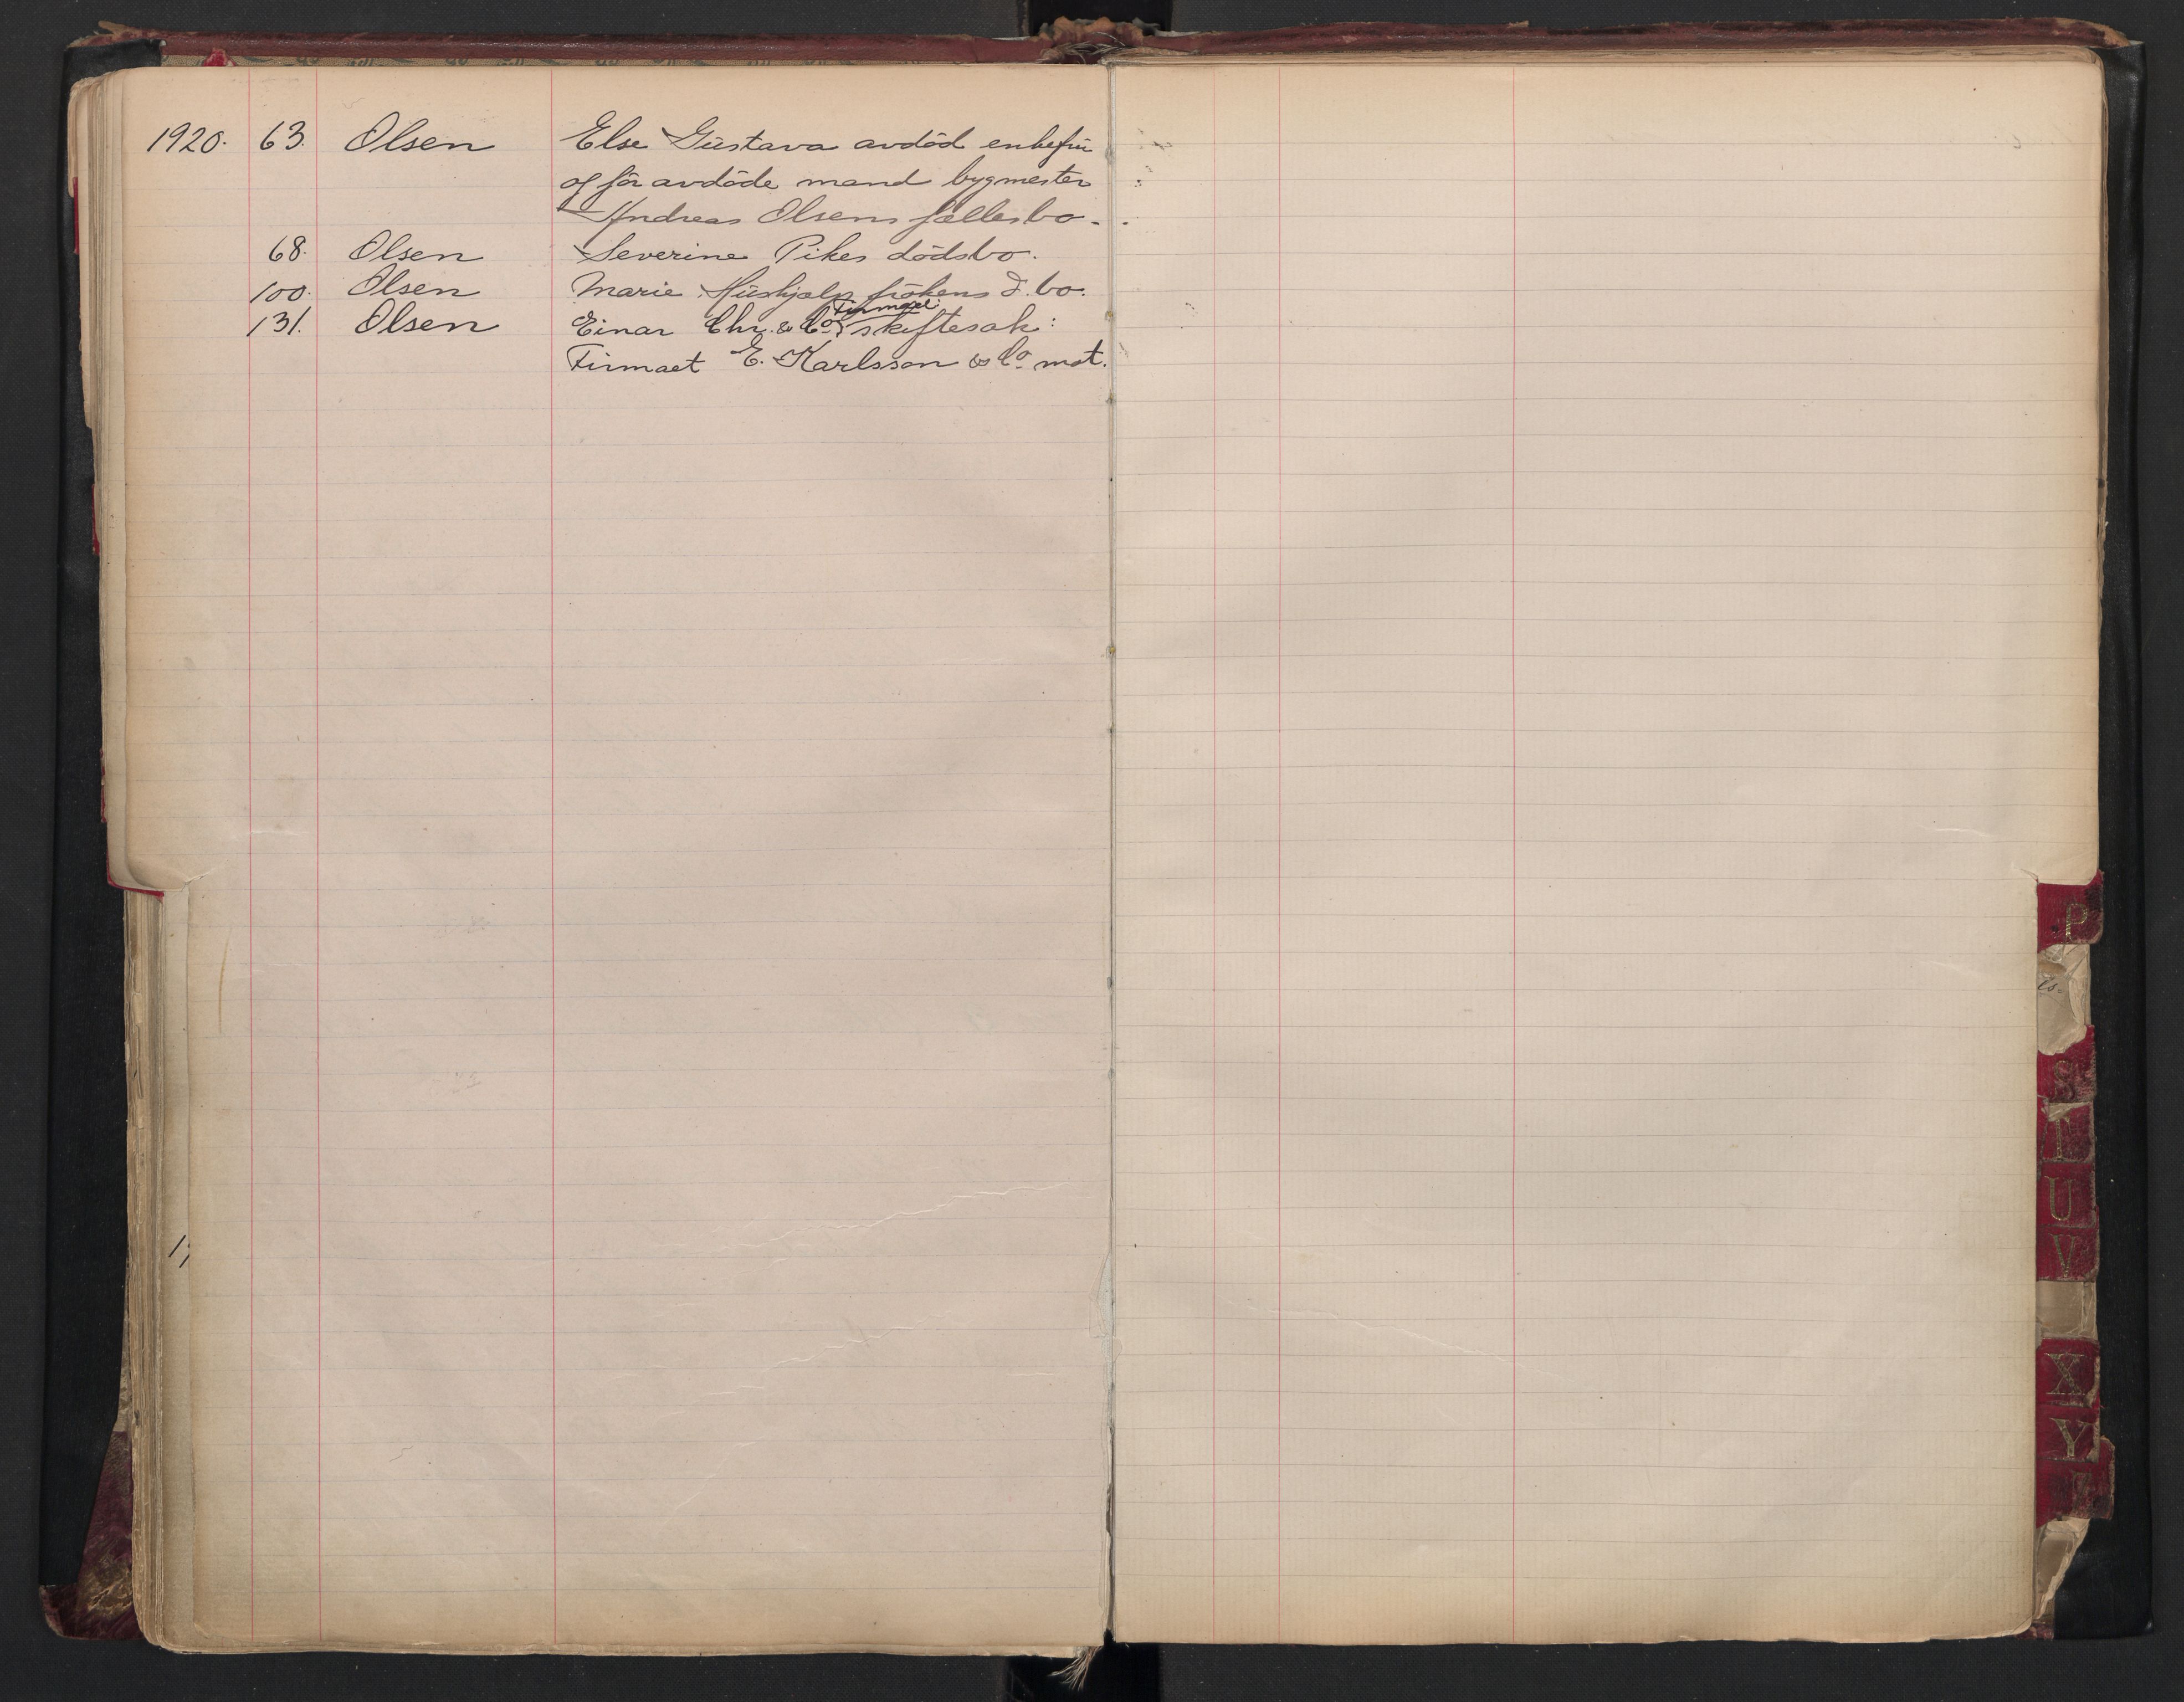 1920. 63. Olsen Else Gustava avdöd enkefru
og för avdöde mand bygmester
Andreas Olsens fællesbo.
68. Olsen Severine Pikes dödsbo.
100. Olsen Marie Hushjælp frökens d. bo.
Firmaet
131. Olsen Einar Chr. & Co skiftesak:
Firmaet E. Karlsson & Co mot.
P
S
T
U
V
X
Y